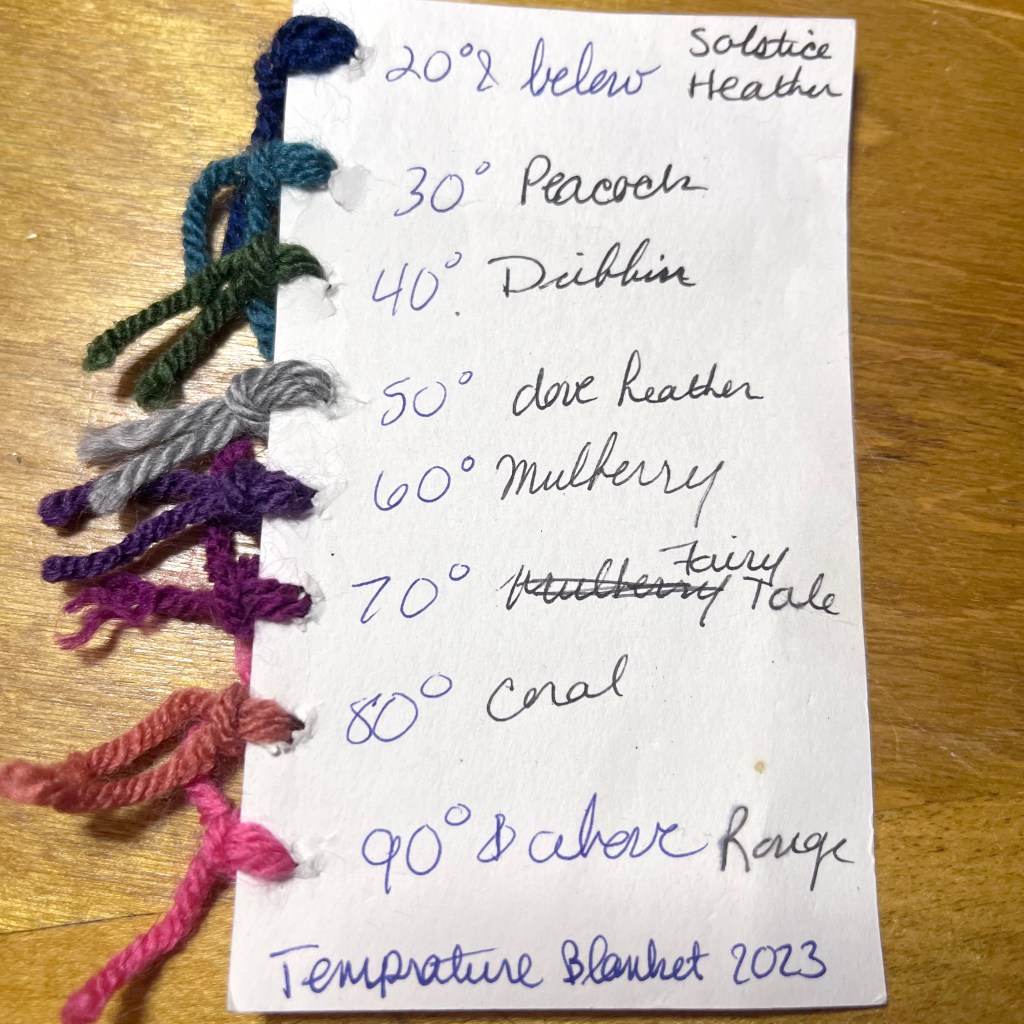 20° & below Solstice Heather
30° Peacock
40° Dubbin
50° dove heather
60° Mulberry
70° Mulberry Fairy Tale
80° Coral
90° & above Rouge
Temprature Blanket 2023